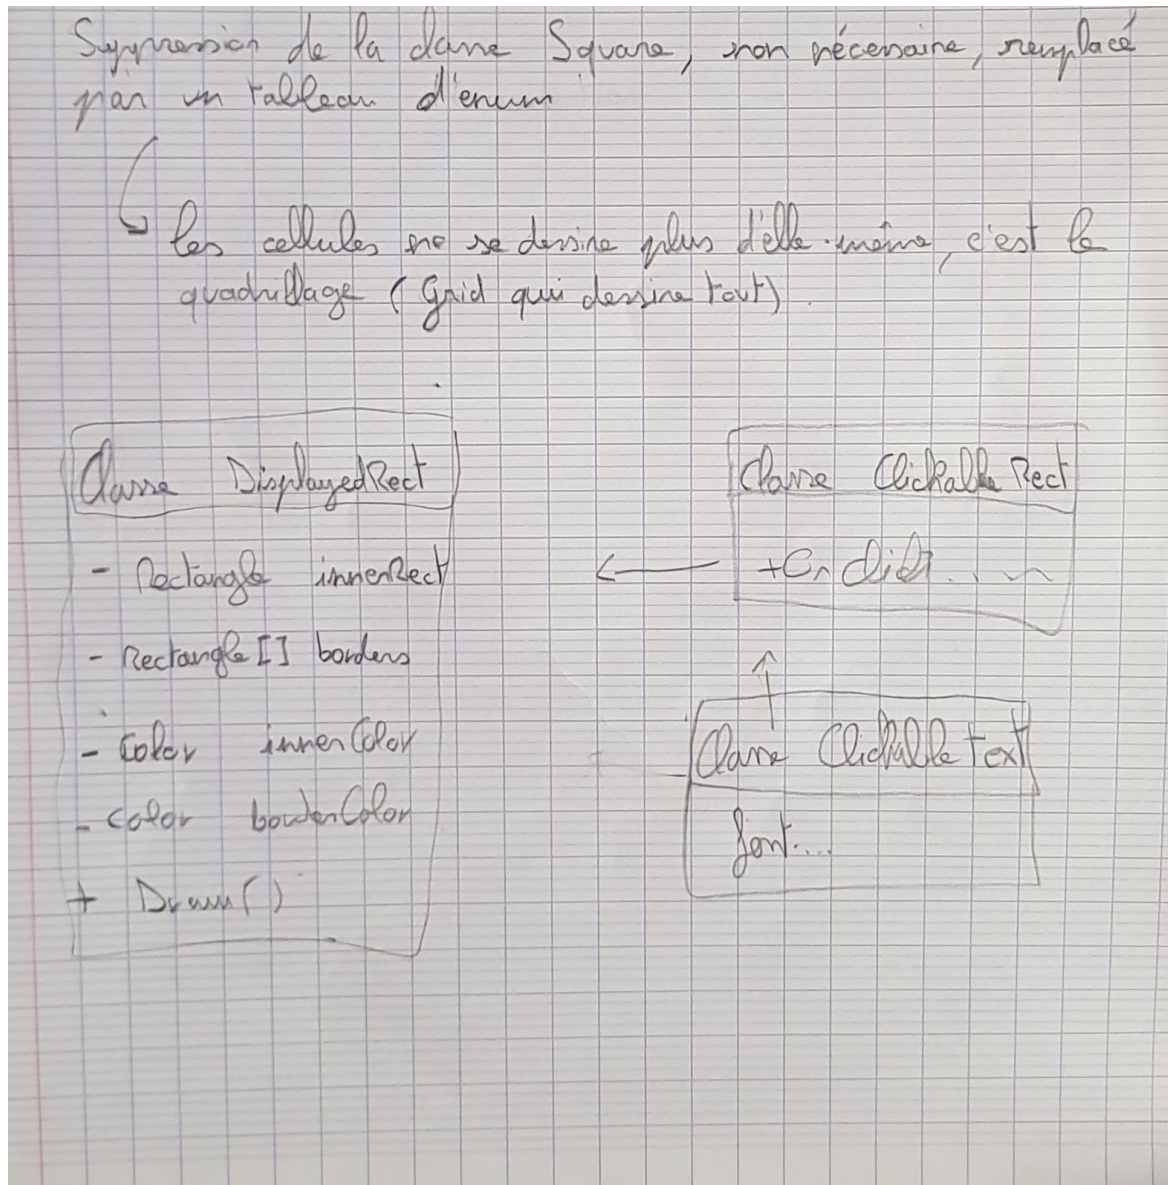 Suppression de la classe Square, non nécessaire, remplacé
par un tableau d'enum
les cellules ne se dessine plus d'elle-même, c'est le
quadrillage (Grid qui dessine tout).
Classe DisplayedRect
- Rectangle innerRect
- Rectangle[] borders
- Color innerColor
- color borderColor
+ Draw()
Classe Clickable Rect
+On Click...
Classe Clickable text
font...